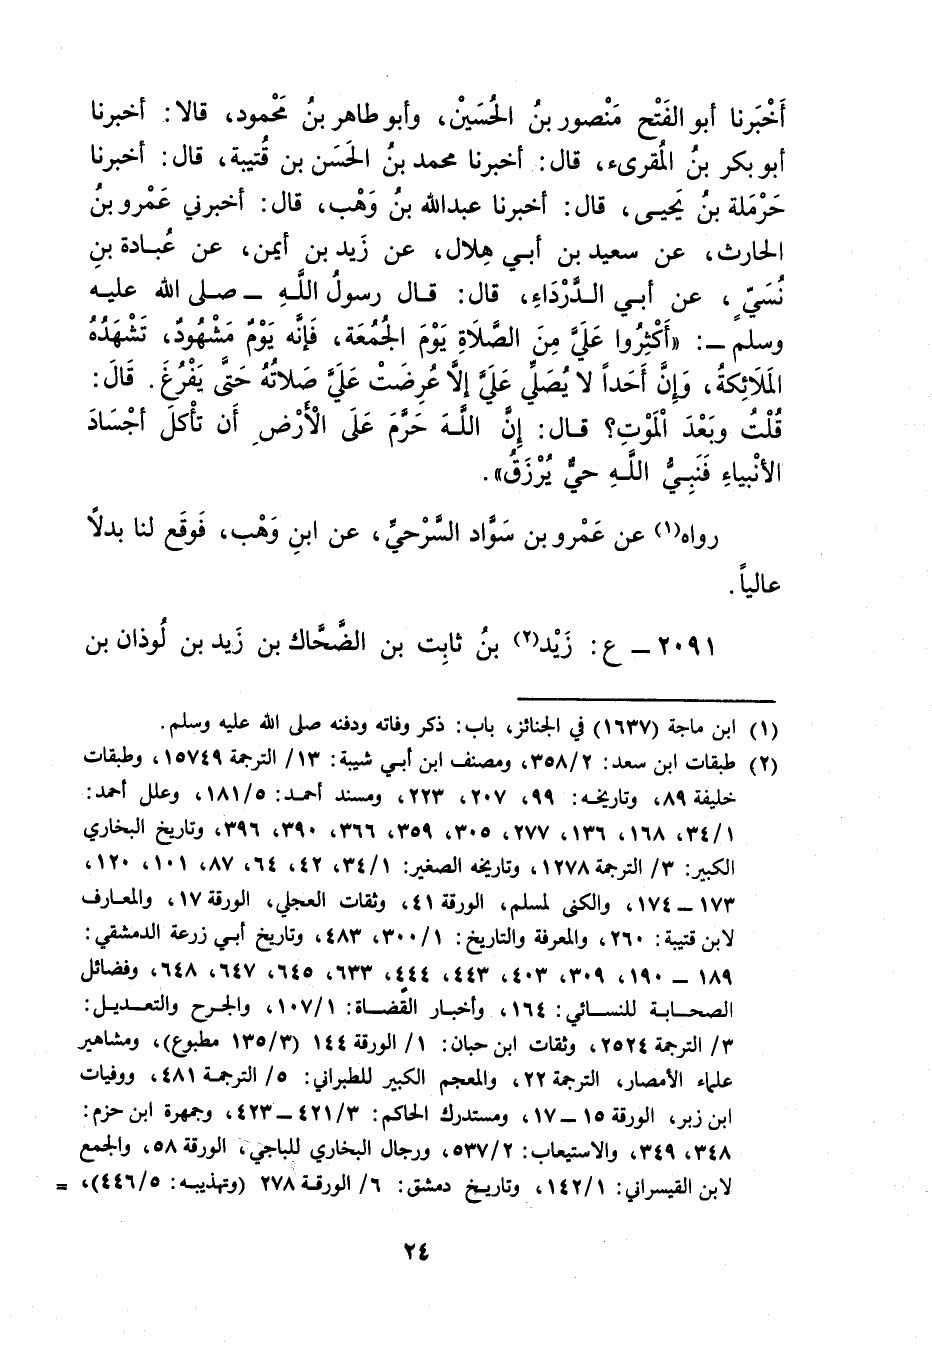 أَخْبَرنا أبو الفَتْح مَنْصور بنُ الحُسَيْنِ، وأبو طاهر بنُ مَحْمود، قالا: أخبرنا
أبو بكر بنُ المُقرىء، قال: أخبرنا محمد بنُ الحَسَن بن قُتيبة، قال: أخبرنا
حَرْمَلة بنُ يَحيـى، قال: أخبرنا عبدالله بنُ وَهْب، قال: أخبرني عَمْرو بنُ
الحارث، عن سعيد بن أبـي هِلال، عن زَيد بن أيمن، عن عُبادة بنِ
نُسَيّ، عن أبـي الدَّرْدَاءِ، قال: قال رسولُ اللَّهِ ــ صلى الله عليه
وسلم ــ: «أَكْثِرُوا عَلَيَّ مِنَ الصَّلاَةِ يَوْمَ الجُمُعَة، فَإنَّه يَوْمٌ مَشْهُودٌ، تَشْهَدُهُ
المَلاَئِكةُ، وَإنَّ أَحَداً لا يُصَلِّي عَلَيَّ إلاَّ عُرِضَتْ عَلَيَّ صَلاتُهُ حَتَّى يَفْرُغَ. قَالَ:
قُلْتُ وبَعْدَ الْمَوْتِ؟ قال: إنَّ اللَّهَ حَرَّمَ عَلَى الْأَرْضِ أَن تَأكلَ أجْسَادَ
الأنْبياءِ فَنَبِـيُّ اللَّهِ حيٌّ يُرْزَقُ».
رواه(١) عن عَمْرو بن سَوَّاد السَّرْحيِّ، عن ابنِ وَهْب، فَوقَع لنا بدلاً
عالياً.
٢٠٩١ ــ ع: زَيْد(٢) بنُ ثابت بن الضَّحَّاك بن زَيد بن لُوذان بن
(١) ابن ماجة (١٦٣٧) في الجنائز، باب: ذكر وفاته ودفنه صلى الله عليه وسلم.
(٢) طبقات ابن سعد: ٣٥٨/٢، ومصنف ابن أبي شيبة: ١٣/ الترجمة ١٥٧٤٩، وطبقات
خليفة ٨٩، وتاريخه: ٩٩، ٢٠٧، ٢٢٣، ومسند أحمد: ١٨١/٥، وعلل أحمد:
٣٤/١، ١٦٨، ١٣٦، ٢٧٧، ٣٠٥، ٣٥٩، ٣٦٦، ٣٩٠، ٣٩٦، وتاريخ البخاري
الكبير: ٣/ الترجمة ١٢٧٨، وتاريخه الصغير: ٣٤/١، ٤٢، ٦٤، ٨٧، ١٠١، ١٢٠،
١٧٣ ــ ١٧٤، والكنى لمسلم، الورقة ٤١، وثقات العجلي، الورقة ١٧، والمعارف
لابن قتيبة: ٢٦٠، والمعرفة والتاريخ: ٣٠٠/١، ٤٨٣، وتاريخ أبـي زرعة الدمشقي:
١٨٩ ــ ١٩٠، ٣٠٩، ٤٠٣، ٤٤٣، ٤٤٤، ٦٣٣، ٦٤٥، ٦٤٧، ٦٤٨، وفضائل
الصحابة للنسائي: ١٦٤، وأخبار القُضاة: ١٠٧/١، والجرح والتعديل:
٣/ الترجمة ٢٥٢٤، وثقات ابن حبان: ١/ الورقة ١٤٤ (١٣٥/٣ مطبوع)، ومشاهير
علماء الأمصار، الترجمة ٢٢، والمعجم الكبير للطبراني: ٥/ الترجمة ٤٨١، ووفيات
ابن زبر، الورقة ١٥ ــ ١٧، ومستدرك الحاكم: ٤٢١/٣ ــ ٤٢٣، وجمهرة ابن حزم:
٣٤٨، ٣٤٩، والاستيعاب: ٥٣٧/٢، ورجال البخاري للباجي، الورقة ٥٨، والجمع
لابن القيسراني: ١٤٢/١، وتاريخ دمشق: ٦/ الورقة ٢٧٨ (وتهذيبه: ٤٤٦/٥)، =
٢٤